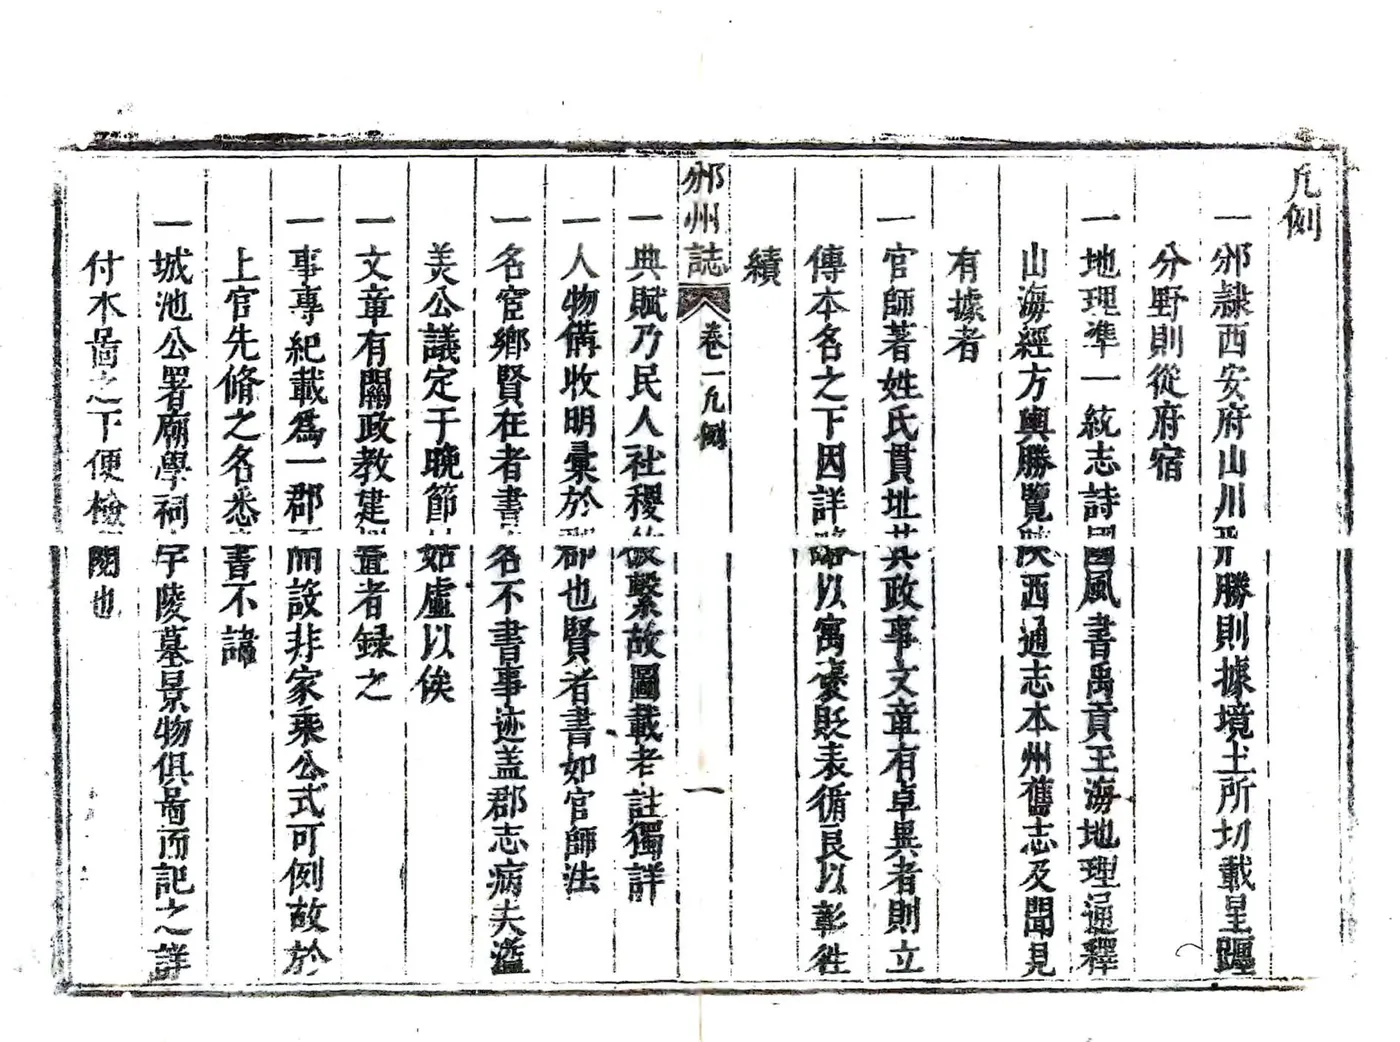 凡例
一邠隸西安府山川形勝則據境土所切載星躔
分野則從府宿
一地理準一統志詩國風書禹貢玉海地理通釋
山海經方輿勝覽陝西通志本州舊志及聞見
有據者
一官師著姓氏貫址其政事文章有卓異者則立
傳本名之下因詳略以寓褒貶表循良以彰徃
績
邠州誌 卷一凡例 一
一典賦乃民人社稷攸繫故圖載者註獨詳
一人物備收明彙於郡也賢者書如官師法
一名宦鄉賢在者書名不書事迹盖郡志病夫濫
美公議定于晚節姑虛以俟
一文章有關政教建置者録之
一事專紀載爲一郡而設非家乘公式可例故於
上官先脩之名悉書不諱
一城池公署廟學祠宇陵墓景物俱啚而記之詳
付木啚之下便檢閱也